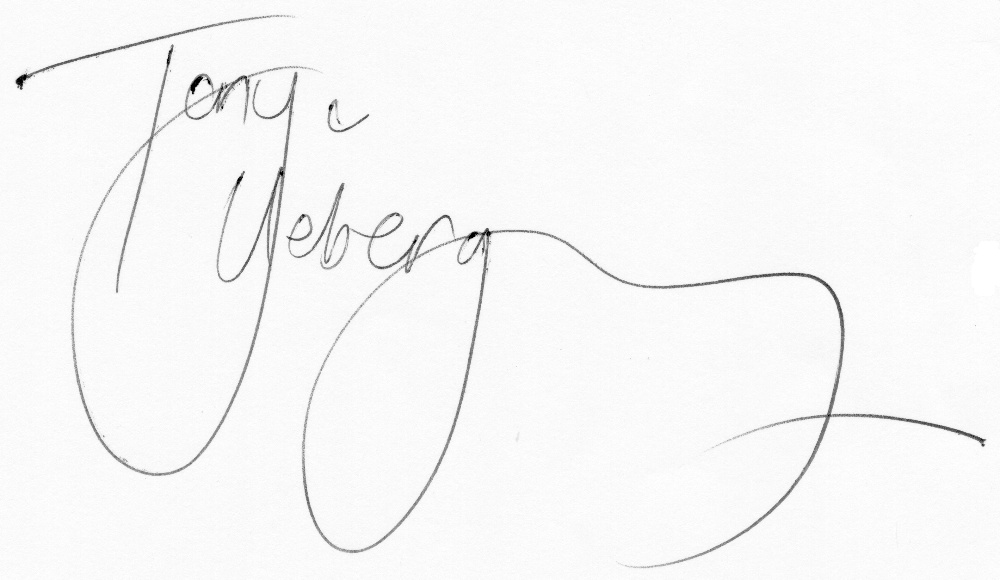 Tony c
Yeberg